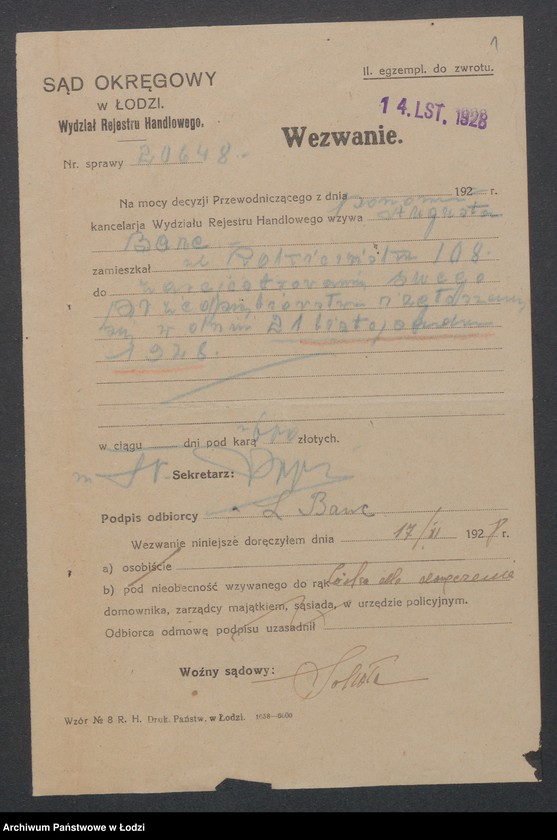 1
II. egzempl. do zwrotu.
SĄD OKRĘGOWY
w ŁODZI.
Wydział Rejestru Handlowego.
14. LST. 1928
Wezwanie.
Nr. sprawy 20648.
Na mocy decyzji Przewodniczącego z dnia 192 r.
kancelarja Wydziału Rejestru Handlowego wzywa Augusta
Banc
zamieszkał ul. 108.
do swego
w dniu 21 listopada
1928.
w ciągu dni pod karą złotych.
Sekretarz:
Podpis odbiorcy L Banc
Wezwanie niniejsze doręczyłem dnia 17/XI 1928 r.
a) osobiście
b) pod nieobecność wzywanego do rąk dla doręczenia
domownika, zarządcy majątkiem, sąsiada, w urzędzie policyjnym.
Odbiorca odmowę podpisu uzasadnił
Woźny sądowy:
Wzór № 8 R. H. Druk. Państw. w Łodzi.
Archiwum Państwowe w Łodzi